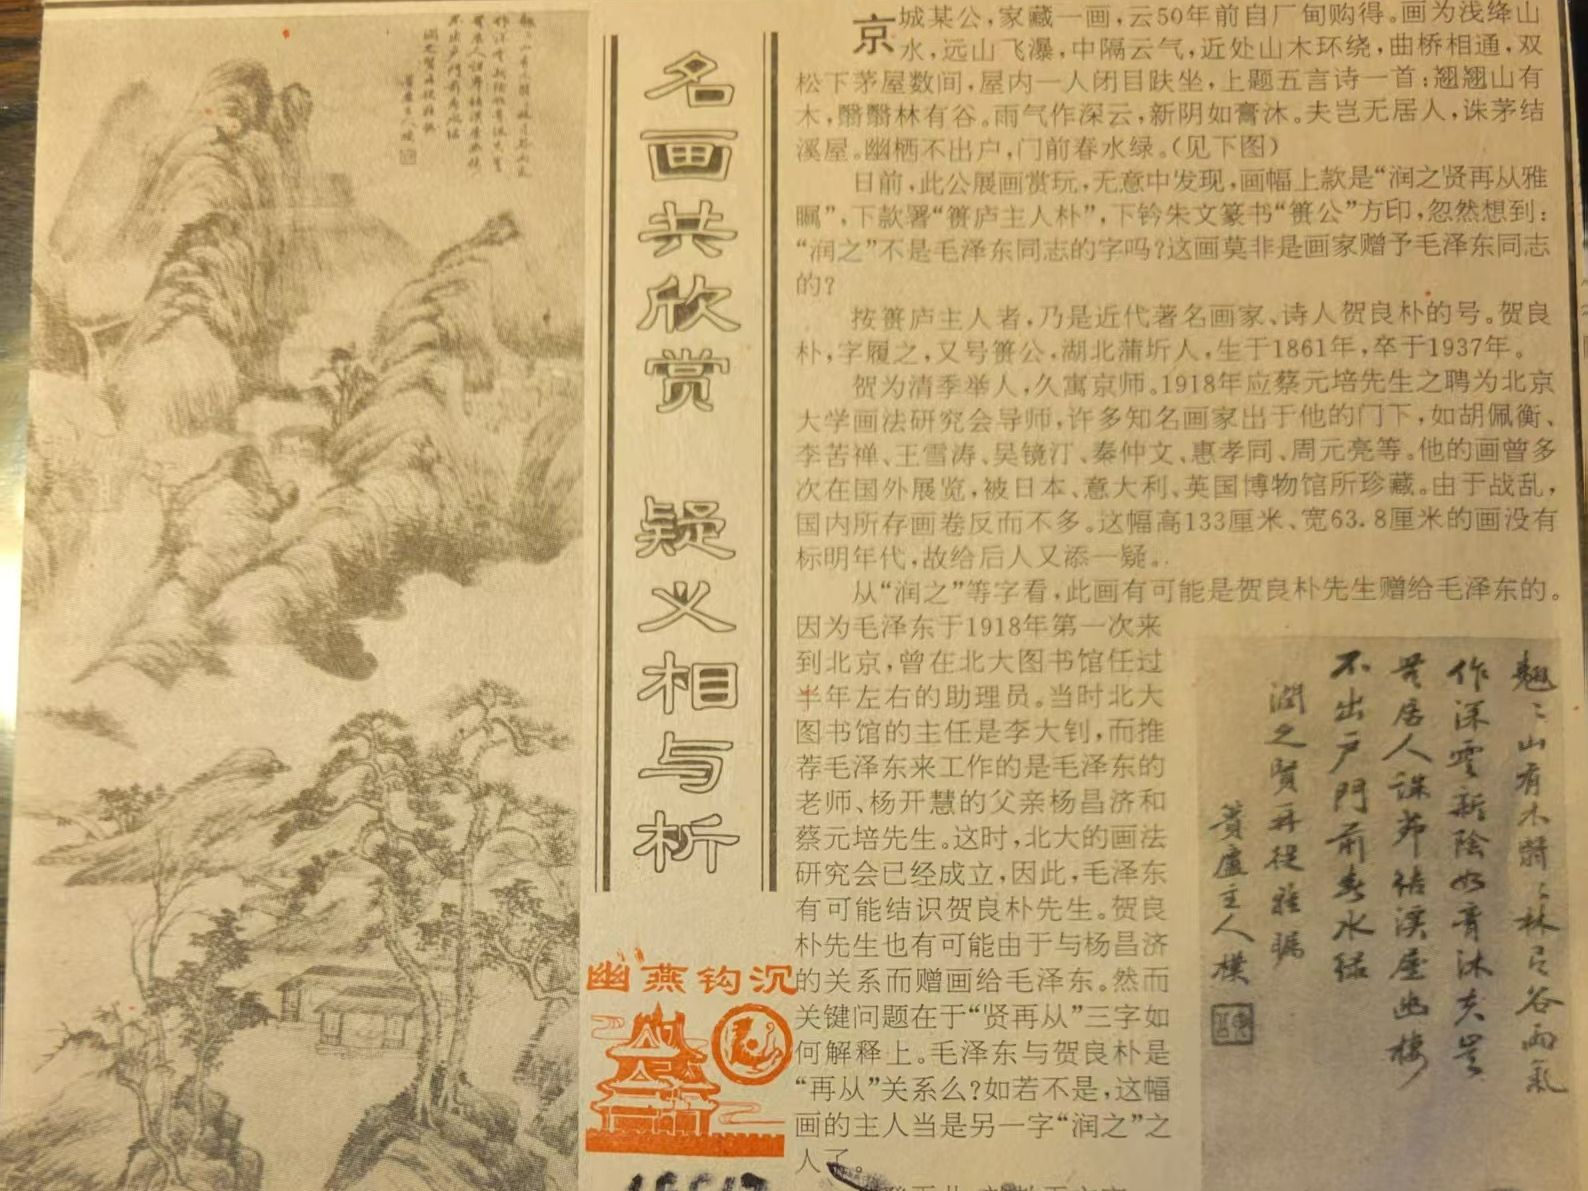 名画共欣赏 疑义相与析
京城某公，家藏一画，云50年前自厂甸购得。画为浅绛山
水，远山飞瀑，中隔云气，近处山木环绕，曲桥相通，双
松下茅屋数间，屋内一人闭目趺坐，上题五言诗一首：翘翘山有
木，翳翳林有谷。雨气作深云，新阴如膏沐。夫岂无居人，诛茅结
溪屋。幽栖不出户，门前春水绿。（见下图）
日前，此公展画赏玩，无意中发现，画幅上款是“润之贤再从雅
瞩”，下款署“篑庐主人朴”，下钤朱文篆书“篑公”方印，忽然想到：
“润之”不是毛泽东同志的字吗？这画莫非是画家赠予毛泽东同志
的？
按篑庐主人者，乃是近代著名画家、诗人贺良朴的号。贺良
朴，字履之，又号篑公，湖北蒲圻人，生于1861年，卒于1937年。
贺为清季举人，久寓京师。1918年应蔡元培先生之聘为北京
大学画法研究会导师，许多知名画家出于他的门下，如胡佩衡、
李苦禅、王雪涛、吴镜汀、秦仲文、惠孝同、周元亮等。他的画曾多
次在国外展览，被日本、意大利、英国博物馆所珍藏。由于战乱，
国内所存画卷反而不多。这幅高133厘米、宽63.8厘米的画没有
标明年代，故给后人又添一疑。
从“润之”等字看，此画有可能是贺良朴先生赠给毛泽东的。
因为毛泽东于1918年第一次来
到北京，曾在北大图书馆任过
半年左右的助理员。当时北大
图书馆的主任是李大钊，而推
荐毛泽东来工作的是毛泽东的
老师、杨开慧的父亲杨昌济和
蔡元培先生。这时，北大的画法
研究会已经成立，因此，毛泽东
有可能结识贺良朴先生。贺良
朴先生也有可能由于与杨昌济
的关系而赠画给毛泽东。然而
关键问题在于“贤再从”三字如
何解释上。毛泽东与贺良朴是
“再从”关系么？如若不是，这幅
画的主人当是另一字“润之”之
人了。
幽燕钩沉
翘〻山有木翳〻林有谷雨氣
作深雲新陰如膏沐夫豈
無居人誅茅結溪屋幽棲
不出户門前春水绿
潤之賢再從雅矚
蕢廬主人樸